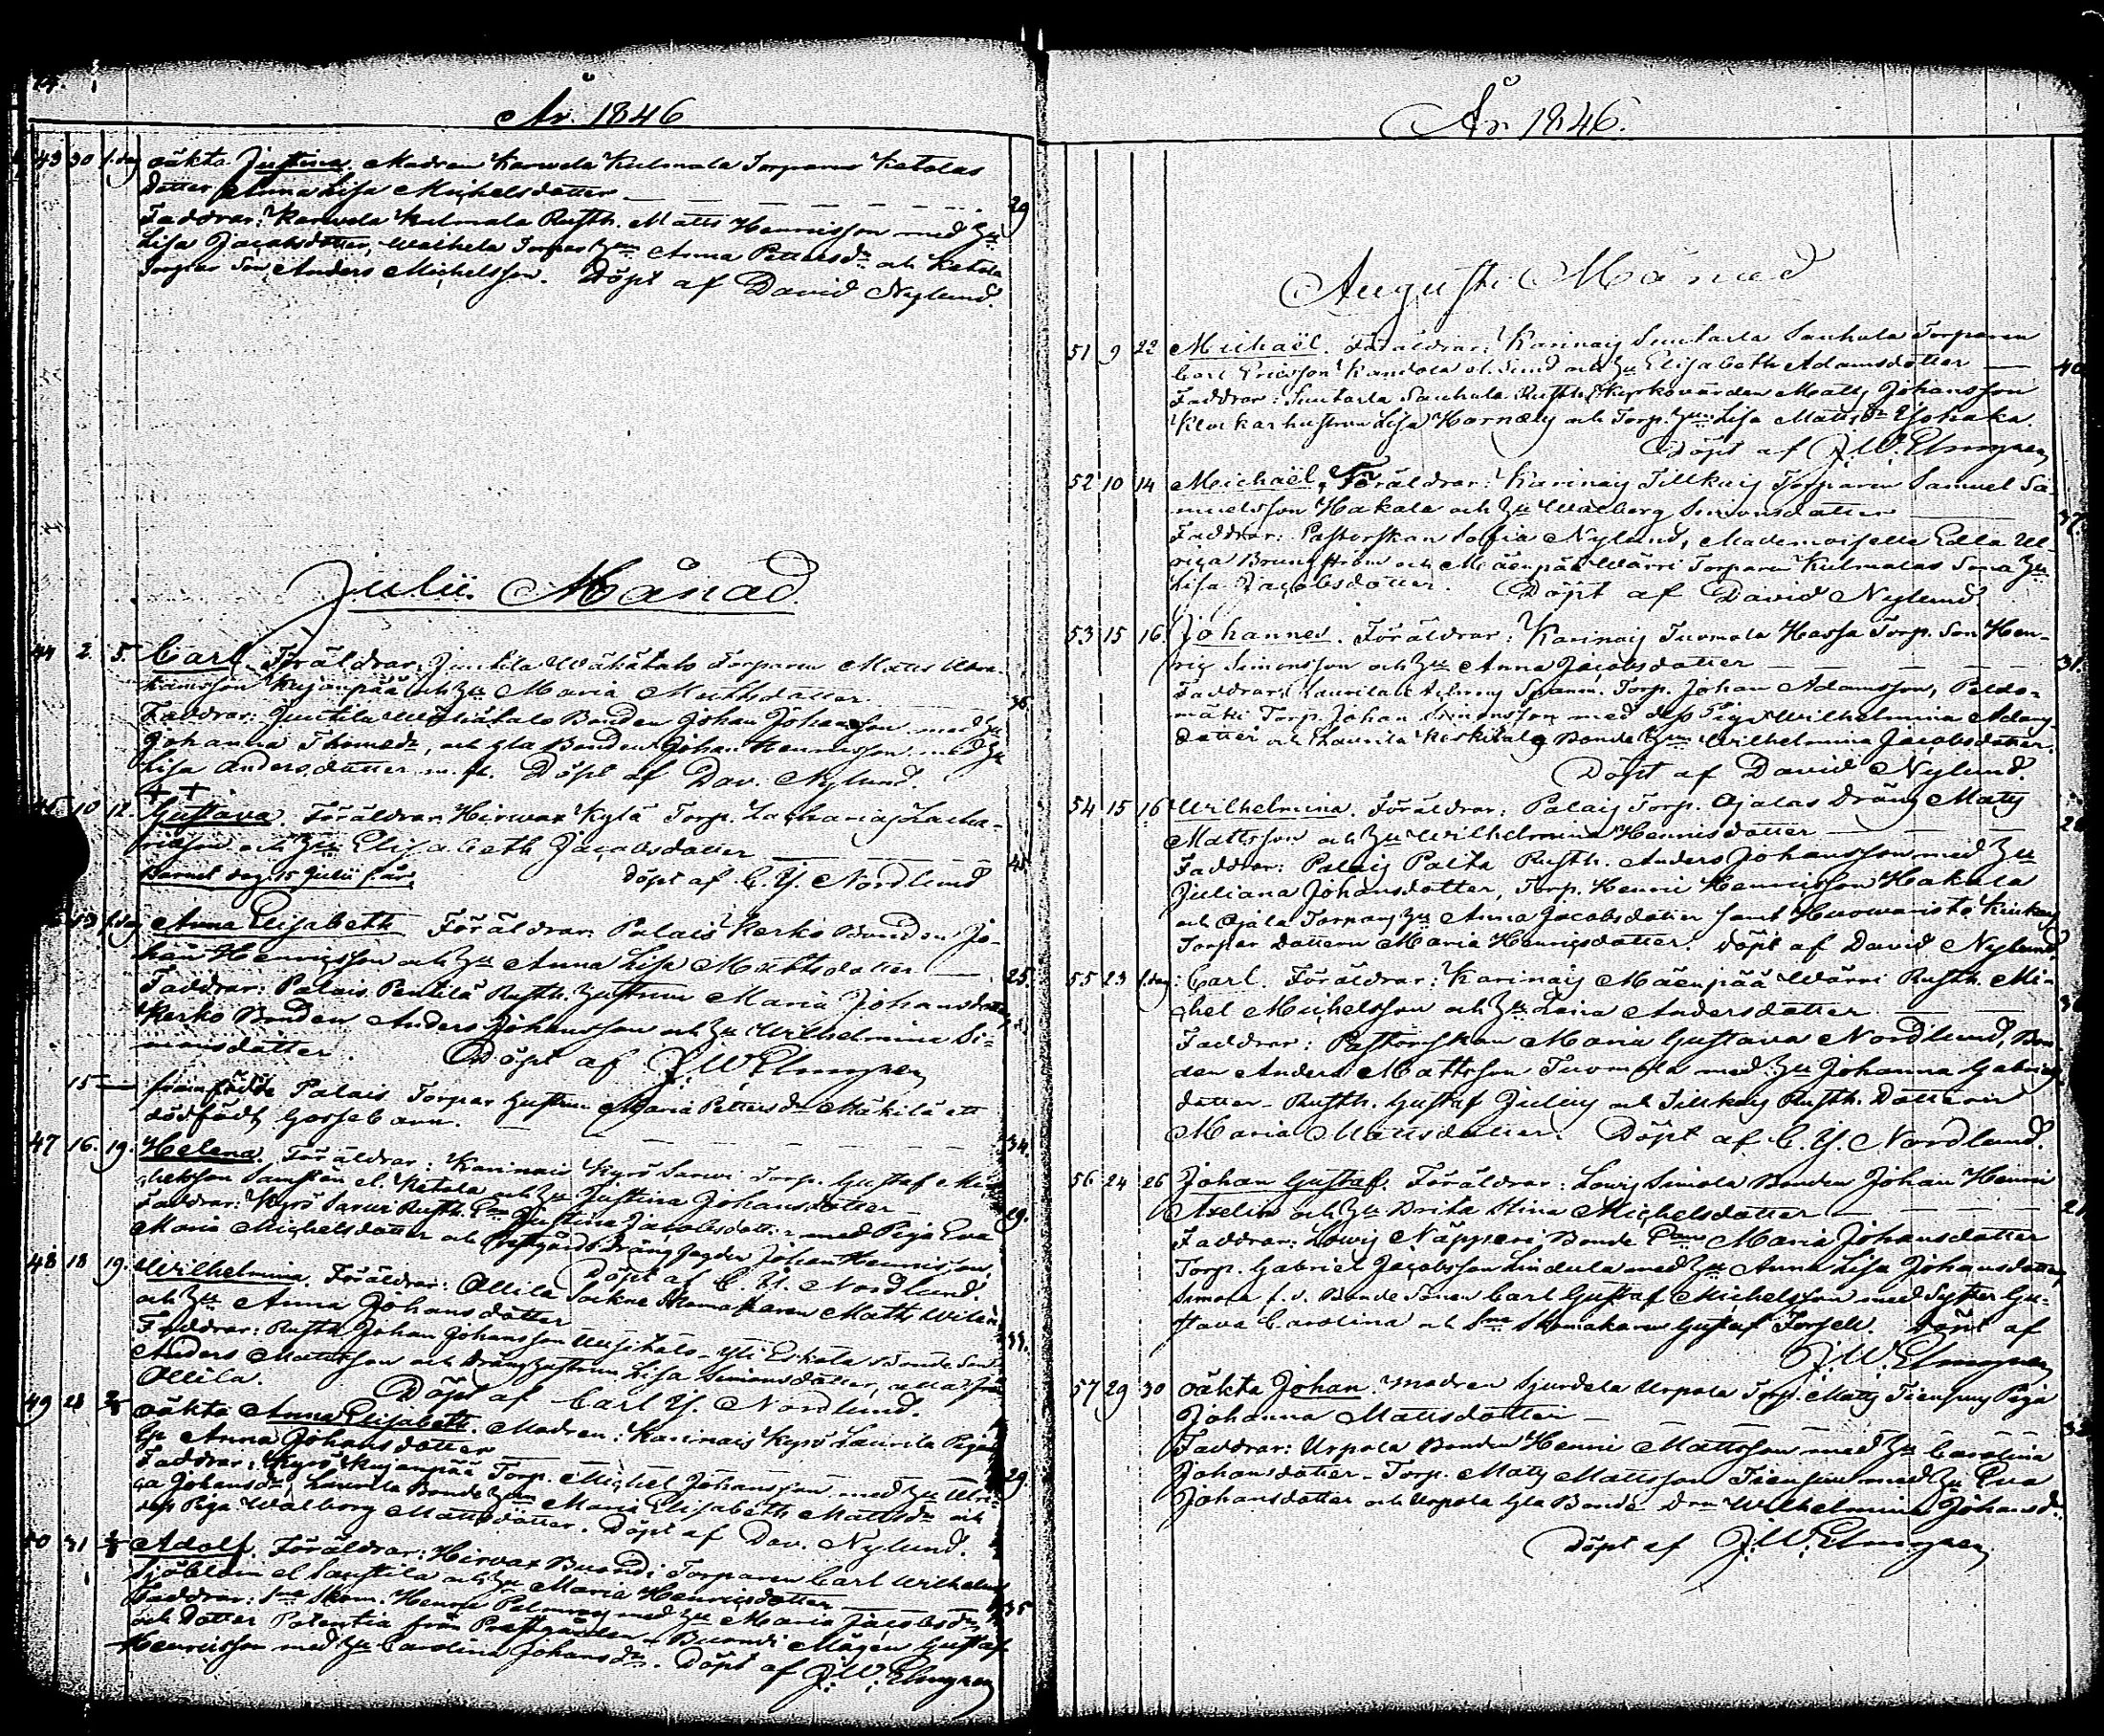 År 1846
43 30 s. dag oäkta Justina. Modren Karvela Kulmala Torparns Ketolas
dotter Anna Lisa Michelsdotter 29
Faddrar: Karvela Kulmala Rusth. Matts Henricsson med Hu
Lisa Jacobsdotter, Torpar Anna Pettersdr och Ketola
Torpar Son Anders Michelsson. Döpt af David Nylund.
Julii Månad.
44 2. 5. Carl. Föräldrar: Juntila Wähätalo Torparen Matts Abra-
hamsson Kujanpää och Hu Maria Mattsdotter
Faddrar: Juntila Wähätalo Bonden Johan Johansson med Hu
Johanna Thomædr, och gla Bonden Johan Henricsson med Hu
Lisa Andersdotter m. fl. Döpt af Dav. Nylund.
45 10 12. Gustava. Föräldrar: Hirwax Kylä Torp. Zacharias Zacha-
riæsson och Hu Elisabeth Jacobsdotter 45
Barnet dog 15 Julii s. år. Döpt af C. Y. Nordlund
13 s. dag Anna Elisabeth Föräldrar: Palais Kerko Bonden Jo-
han Henricsson och Hu Anna Lisa Mattsdotter 25.
Faddrar: Palais Pentilä Rusth. Hustrun Maria Johansdotter
Kerko Bonden Anders Johansson och Hu Wilhelmina Si-
monsdotter. Döpt af J. W. Elmgren
15 framfödde Palais Torpar Hustrun Maria Pettersdr Mäkilä ett
dödfödt Gossebarn. 34.
47 16. 19. Helena. Föräldrar: Karinais Kyrö Sarvi Torp. Gustaf Mi-
chelsson el. Ketola och Hu Justina Johansdotter 29.
Faddrar: Kyrö Sarvi Rusth. Justina Jacobsdotter med Piga Eva
Maria Michelsdotter och Prestgårds Dräng Johan Henricsson.
Döpt af C. Y. Nordlund
48 18 19. Wilhelmina. Föräldrar: Ollila Sockne Skomakaren Matts Wilén
och Hu Anna Johansdotter 33.
Faddrar: Rusth. Johan Johansson Uusitalo - Yli Eskola Bonde Son
Anders Mattsson och Dräng Hustrun Lisa Simonsdotter, alla från
Ollila. Döpt af Carl Y. Nordlund.
49 28 2/8 oäkta Anna Elisabeth. Modren: Karinais Kyrö Laurila Pigan
Anna Johansdotter 29.
Faddrar: Kyrö Kujanpää Torp. Michel Johansson med Hu Ulri-
ca Johansdr, Laurila Bonde Maria Elisabeth Mattsdr och
dess Piga Walborg Mattsdotter. Döpt af Dav. Nylund.
50 31 2/8 Adolf. Föräldrar: Hirvax Buandi Torparen Carl Wilhelm
Sjöblom el. och Hu Maria Henricsdotter 35
Faddrar: Skom. Henric Palmroos med Hu Maria Jacobsdr
och Dotter Potentia från Prestgården - Buandi Mågen Gustaf
Henricsson med Hu Carolina Johansdr. Döpt af J. W. Elmgren
År 1846.
Augusti Månad
51 9 22 Michaël. Föräldrar: Karinais Suutarla Sauhula Torparen
Carl Ericsson Kandola el. Sund och Hu Elisabeth Adamsdotter 40
Faddrar: Suutarla Sauhula Rusth. Kyrkovärden Matts Johansson
Klockarhustrun Lisa Hornæus och Torp. Lisa Mattsdr
Döpt af J. W. Elmgren
52 10 14 Michaël. Föräldrar: Karinais Tillkais Torparen Samuel Sa-
muelsson Hakala och Hu Walborg Simonsdotter 37.
Faddrar: Pastorskan Sofia Nylund, Mademoiselle Edla Ul-
rica Brunström och Mäenpää Wärri Torparen Kulmalas Sona Hu
Lisa Jacobsdotter. Döpt af David Nylund
53 15 16 Johannes. Föräldrar: Karinais Tuomola Hassa Torp. Son Hen-
ric Simonsson och Hu Anna Jacobsdotter 31.
Faddrar: Laurila Torp. Johan Adamsson, Peldo-
mäki Torp. Johan Simonsson med dess Piga Wilhelmina Adams-
dotter och Laurila Keskitalo Bonde Wilhelmina Jacobsdotter.
Döpt af David Nylund.
54 15 16 Wilhelmina. Föräldrar: Palais Torp. Ojalas Dräng Matts
Mattsson och Hu Wilhelmina Henricsdotter
Faddrar: Palais Paita Rusth. Anders Johansson med Hu
Juliana Johansdotter, Torp. Henric Henricsson Hakala
och Ojala Torpars Hu Anna Jacobsdotter samt
Torpar Dottern Maria Henricsdotter. Döpt af David Nylund.
55 23 s. dag Carl. Föräldrar: Karinais Mäenpää Wärri Rusth. Mi-
chel Michelsson och Hu Lena Andersdotter
Faddrar: Pastorskan Maria Gustava Nordlund, Bon-
den Anders Mattsson Tuomola med Hu Johanna Gabriels-
dotter - Rusth. Gustaf Julius och Tillkais Rusth. Dottren
Maria Mattsdotter. Döpt af C. Y. Nordlund.
56 24 26 Johan Gustaf. Föräldrar: Lovis Simola Bonden Johan Henric
Axelin och Hu Brita Stina Michelsdotter
Faddrar: Lovis Näpperi Bonde Maria Johansdotter
Torp. Gabriel Jacobsson Lindula med Hu Anna Lisa Johansdotter,
Simola f. d. Bonde Sonen Carl Gustaf Michelsson med Syster Gu-
stava Carolina och Skomakaren Gustaf Forsell. Döpt af
J. W. Elmgren
57 29 30 oäkta Johan. Modren Sjurdela Urpola Torp. Matts Tiensuus Piga
Johanna Mattsdotter
Faddrar: Urpola Bonden Henric Mattsson med Hu Carolina
Johansdotter - Torp. Matts Mattsson Tiensuu med Hu Eva
Johansdotter och Urpola gla Bonde Wilhelmina Johansdr.
Döpt af J. W. Elmgren